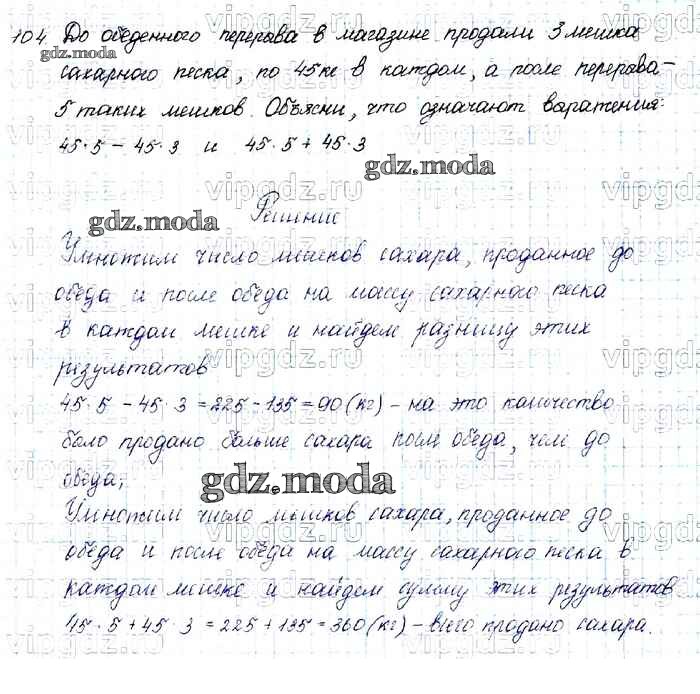 104 До обеденного перерыва в магазине продали 3 мешка
сахарного песка, по 45 кг в каждом, а после перерыва -
5 таких мешков. Объясни, что означают выражения:
45·5 - 45·3 и 45·5 + 45·3
Решение
Умножим число мешков сахара, проданное до
обеда и после обеда на массу сахарного песка
в каждом мешке и найдем разницу этих
результатов
45·5 - 45·3 = 225 - 135 = 90 (кг) - на это количество
было продано больше сахара после обеда, чем до
обеда;
Умножим число мешков сахара, проданное до
обеда и после обеда на массу сахарного песка в
каждом мешке и найдем сумму этих результатов
45·5 + 45·3 = 225 + 135 = 360 (кг) - всего продано сахара.
gdz.moda
gdz.moda
gdz.moda
gdz.moda
vipgdz.ru